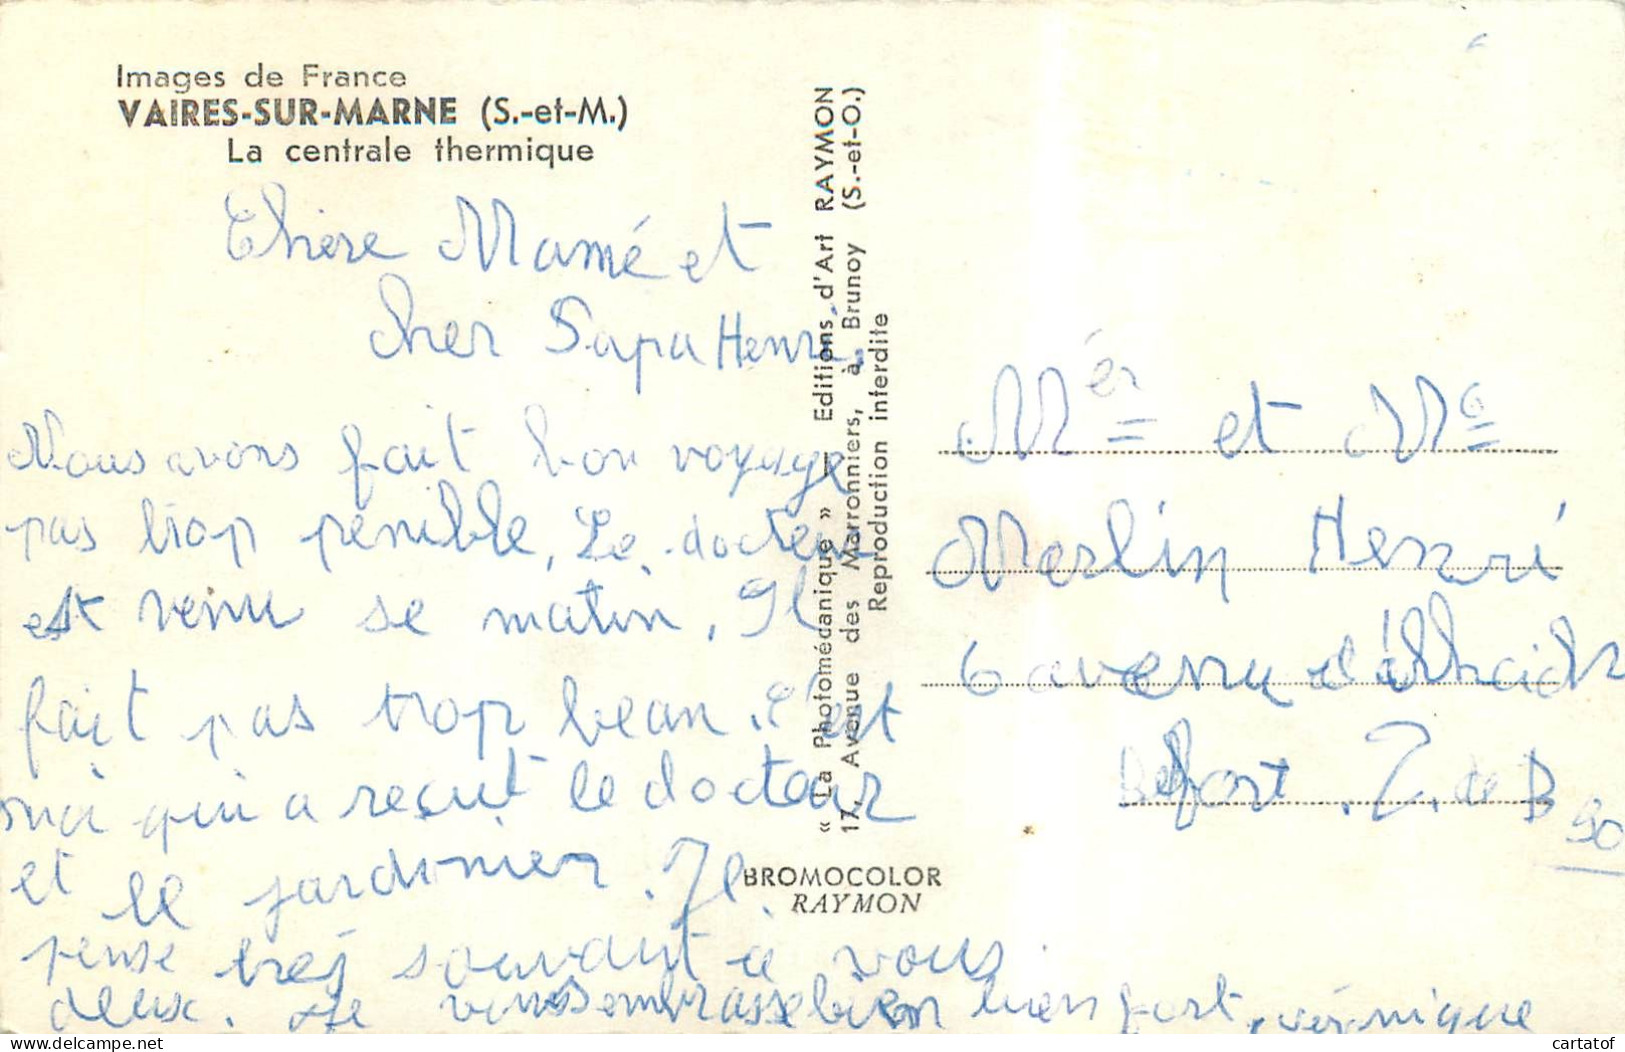 Images de France
VAIRES-SUR-MARNE (S.-et-M.)
La centrale thermique
Chère Mamé et
cher Papa Henri.
Nous avons fait bon voyage
pas trop penible, Le docteur
est venu se matin, Il
fait pas trop beau. c'est
moi qui a reçut le docteur
et le jardinier. Je
pense tres souvant à vous
deux. Je vous embrasse bien bien fort, véronique
« La Photomécanique » — Editions d'Art RAYMON
17, Avenue des Marronniers, à Brunoy (S.-et-O.)
Reproduction interdite
BROMOCOLOR
RAYMON
et
Merlin Henri
6 avenu
Belfort. T. de B
90
cartatof